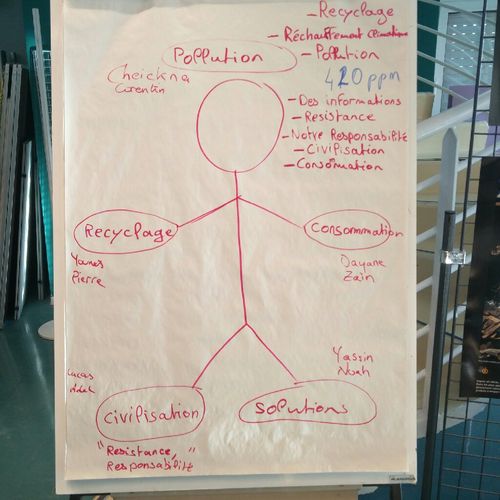 - Recyclage
- Réchauffement climatique
Pollution
- Pollution
Cheickna
Corentin
420 ppm
- Des informations
- Resistance
- Notre Responsabilité
- Civilisation
- Consommation
Recyclage
Consommation
Younes
Pierre
Dayane
Zain
Yassin
Noah
Lucas
Adel
Civilisation
Solutions
"Resistance,"
Responsabilité